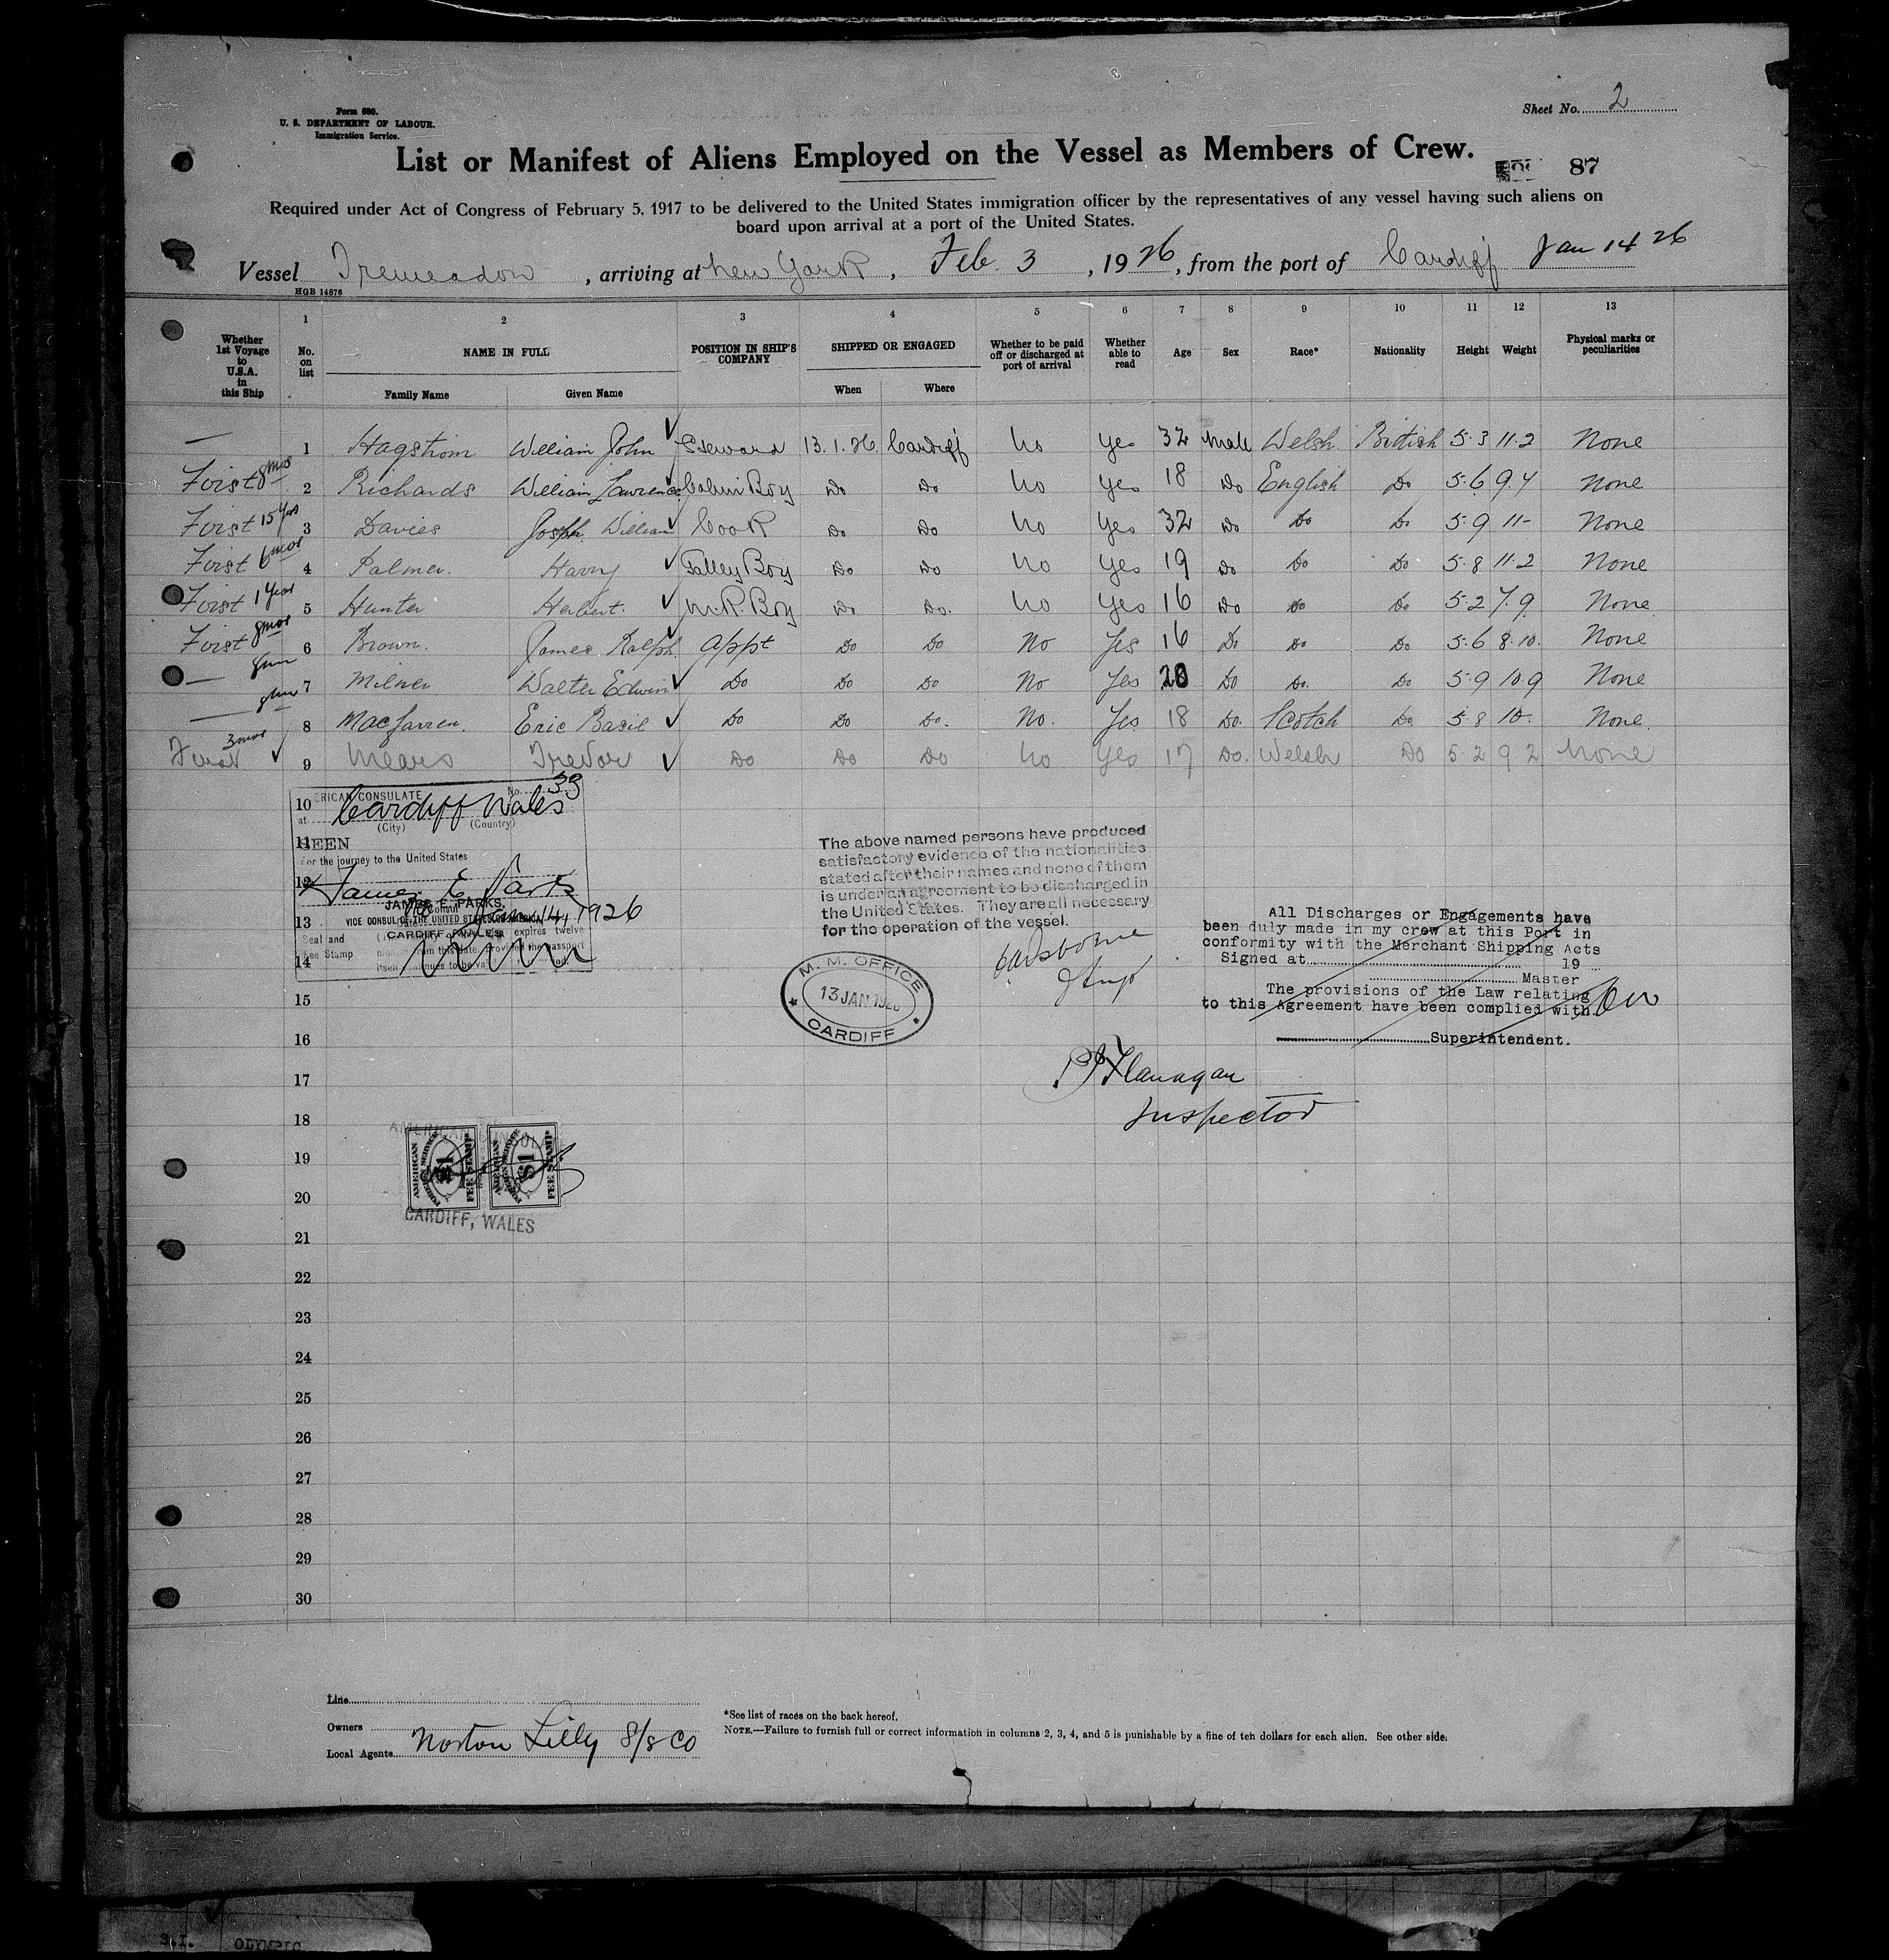 Form 680.
U. S. DEPARTMENT OF LABOUR.
Immigration Service.
Sheet No. 2
List or Manifest of Aliens Employed on the Vessel as Members of Crew.
87
Required under Act of Congress of February 5, 1917 to be delivered to the United States immigration officer by the representatives of any vessel having such aliens on
board upon arrival at a port of the United States.
Vessel Tremeadow, arriving at New York, Feb. 3, 1926, from the port of Cardiff Jan 14 26
HGB 14876
1 2 3 4 5 6 7 8 9 10 11 12 13
Whether 1st Voyage to U.S.A. in this Ship No. on list NAME IN FULL POSITION IN SHIP'S COMPANY SHIPPED OR ENGAGED Whether to be paid off or discharged at port of arrival Whether able to read Age Sex Race* Nationality Height Weight Physical marks or peculiarities
Family Name Given Name When Where
— 1 Hagstrom William John ✓ Steward 13.1.26. Cardiff No Yes 32 Male Welsh British 5.3 11.2 None
First 8 mos 2 Richards William Lawrence ✓ Cabin Boy Do Do No Yes 18 Do English Do 5.6 9.4 None
First 15 Yrs 3 Davies Joseph William ✓ Cook Do Do No Yes 32 Do Do Do 5.9 11- None
First 6 mos 4 Palmer. Harry ✓ Galley Boy Do Do No Yes 19 Do Do Do 5.8 11.2 None
First 1 Year 5 Hunter Herbert. ✓ M.R. Boy Do Do. No Yes 16 Do Do Do 5.2 7.9 None
First 8 mos 6 Brown. James Ralph ✓ Appt Do Do No Yes 16 Do Do Do 5.6 8.10. None
— 7 Milner Walter Edwin ✓ Do Do Do No Yes 20 Do Do. Do 5.9 10.9 None
— 8 MacLarren. Eric Basil ✓ Do Do Do. No. Yes 18 Do. Scotch Do 5.8 10. None
First 3 mos ✓ 9 Mears Trevor ✓ Do Do Do No Yes 17 Do. Welsh Do 5.2 9.2 None
10
AMERICAN CONSULATE No. 33
at Cardiff Wales
(City) (Country)
11
SEEN
For the journey to the United States
12
James E. Parks
JAMES E. PARKS,
13
VICE CONSUL OF THE UNITED STATES OF AMERICA
Jan. 14, 1926
CARDIFF, WALES
expires twelve
Seal and
Fee Stamp
14
The above named persons have produced
satisfactory evidence of the nationalities
stated after their names and none of them
is under an agreement to be discharged in
the United States. They are all necessary
for the operation of the vessel.
M. M. OFFICE
13 JAN 1926
CARDIFF
All Discharges or Engagements have
been duly made in my crew at this Port in
conformity with the Merchant Shipping Acts
Signed at 19
Master
The provisions of the Law relating
to this Agreement have been complied with.
Superintendent.
15
16
17
Flanagan
Inspector
18
AMERICAN CONSULATE
AMERICAN FOREIGN SERVICE $1 FEE STAMP
AMERICAN FOREIGN SERVICE $1 FEE STAMP
19
20
CARDIFF, WALES
21
22
23
24
25
26
27
28
29
30
Line
Owners
Local Agents Norton Lilly S/S Co
*See list of races on the back hereof.
NOTE.—Failure to furnish full or correct information in columns 2, 3, 4, and 5 is punishable by a fine of ten dollars for each alien. See other side.
S.I. OLYMPIC